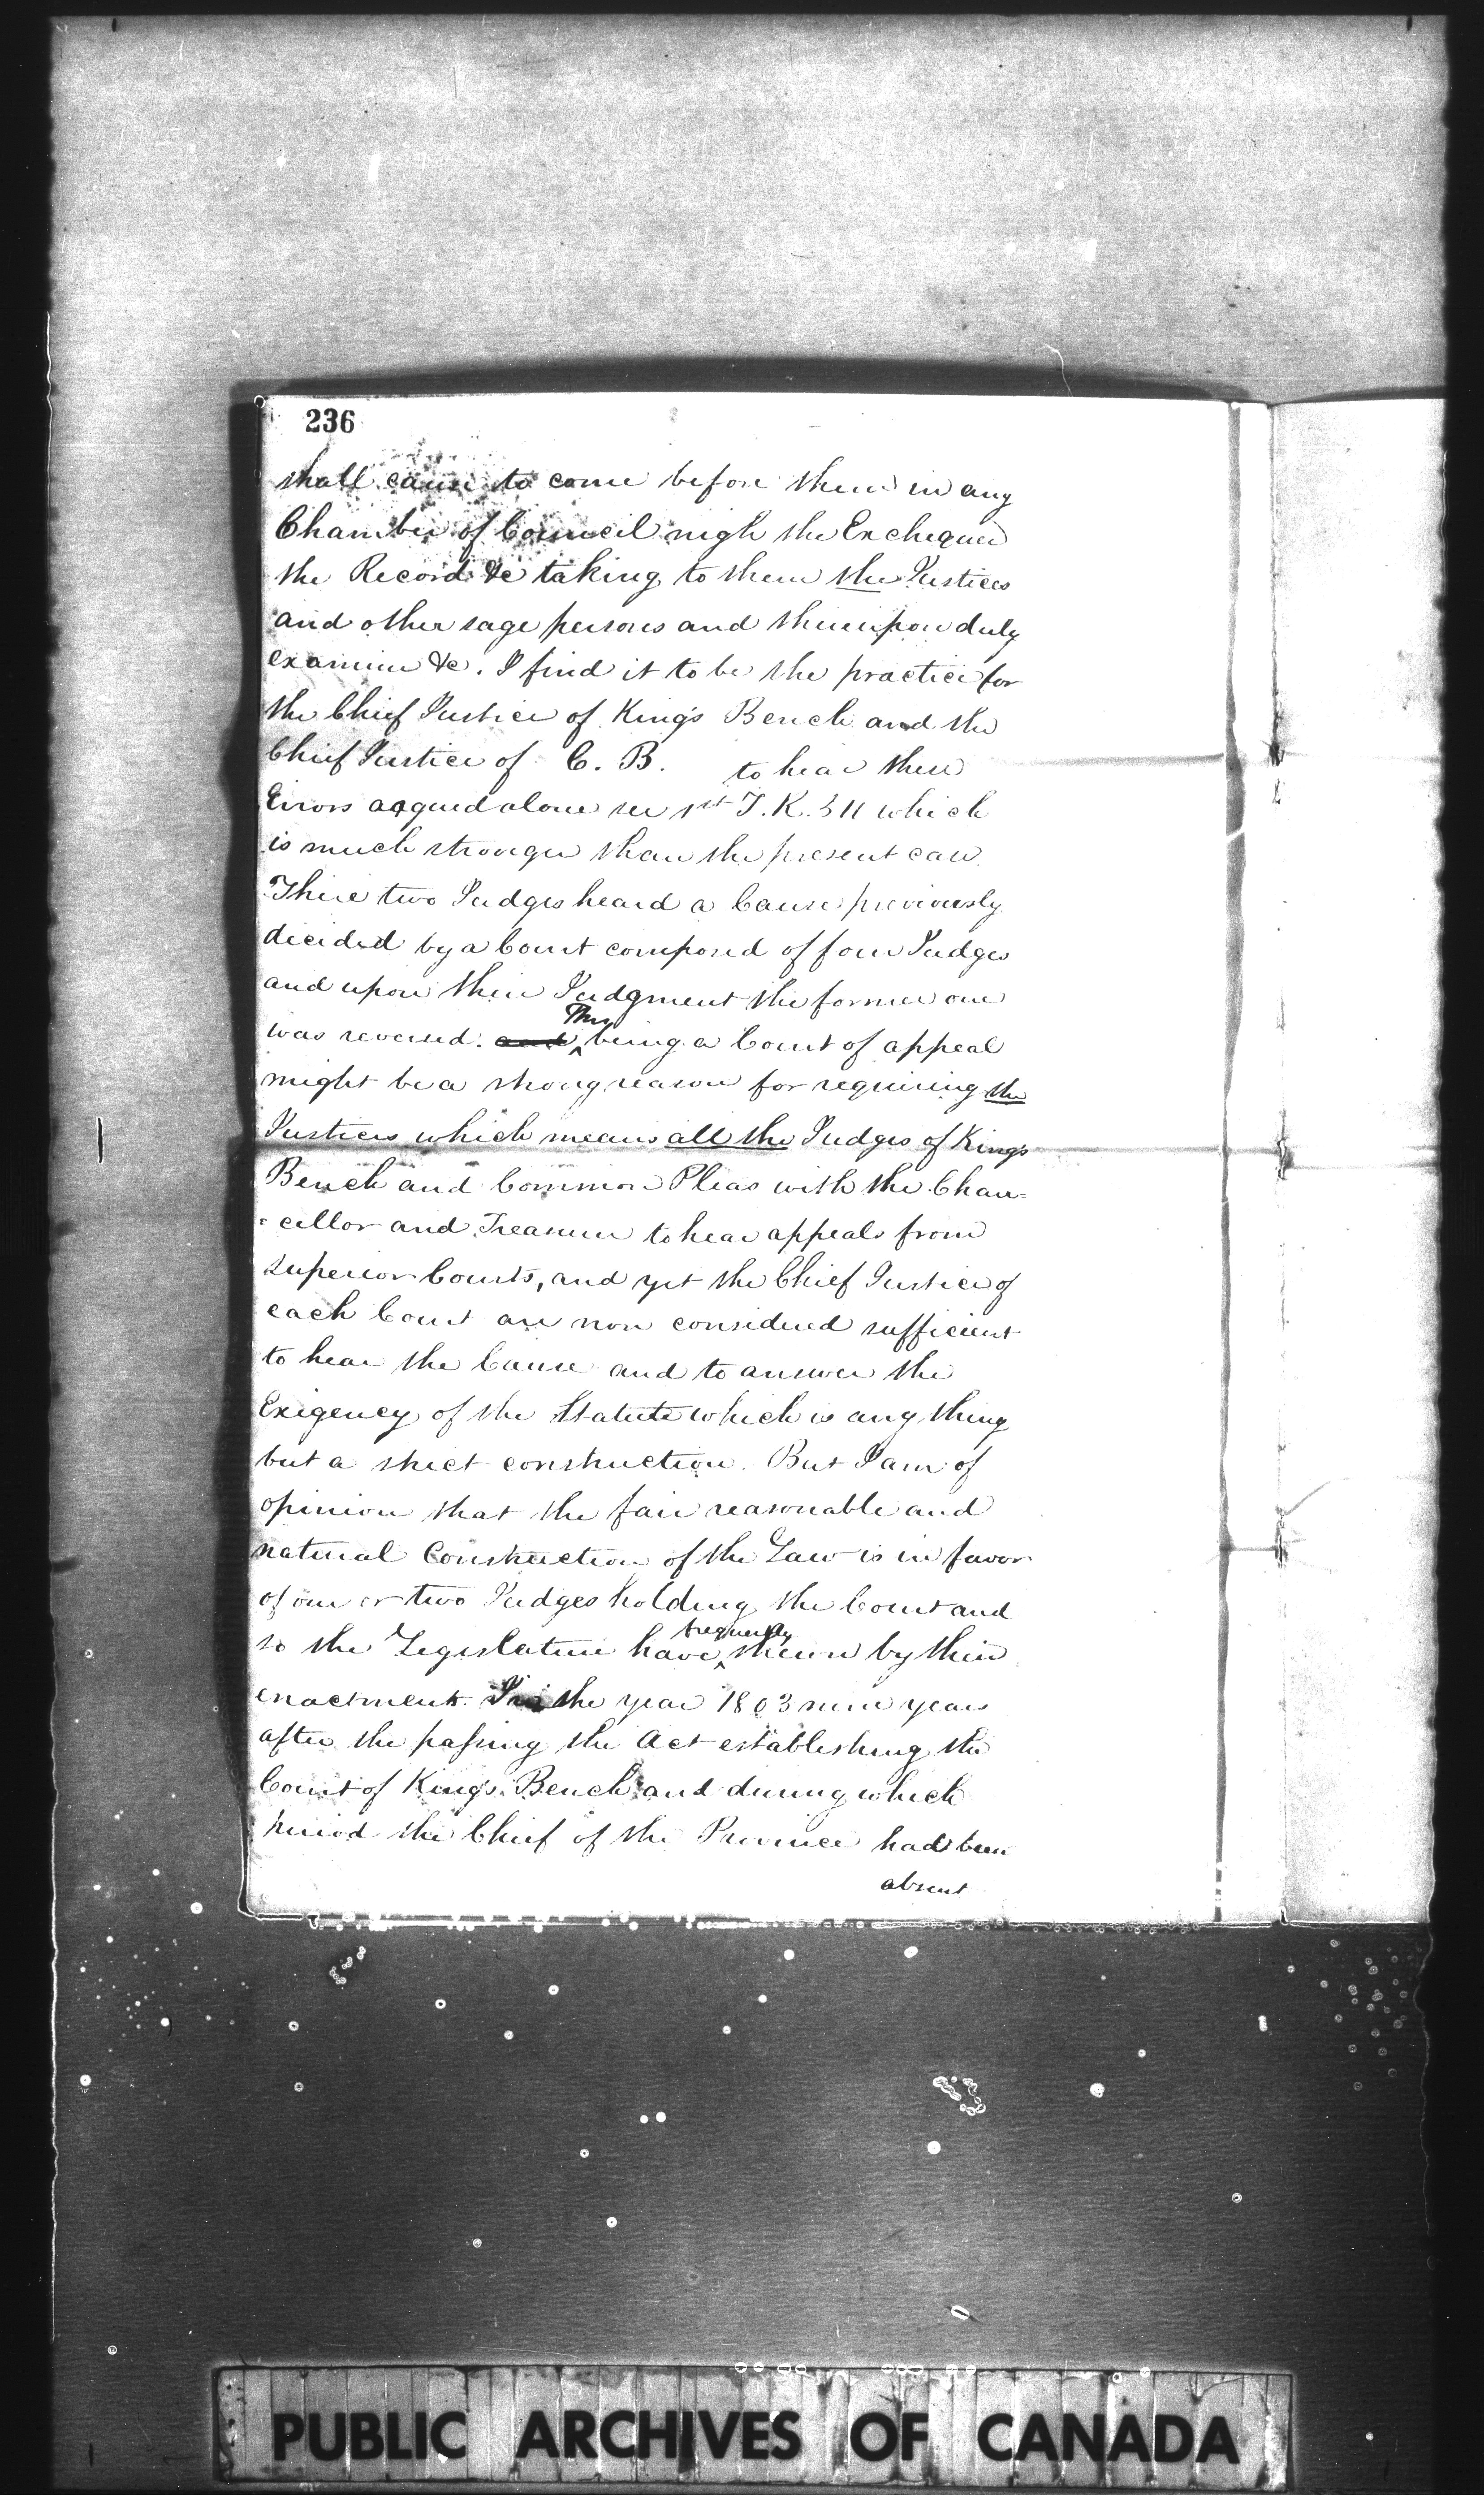 236
shall cause to come before them in any
Chamber of Council nigh the Exchequer
the Record &c taking to them the Justices
and other sage persons and thereupon duly
examine &c. I find it to be the practice for
the Chief Justice of King's Bench and the
Chief Justice of C. B. to hear these
Errors argued alone see 1st T. R. 311 which
is much stronger than the present case.
There two Judges heard a Cause previously
decided by a Court composed of four Judges
and upon their Judgment the former one
This
was reversed. and being a Court of appeal
might be a strong reason for requiring the
Justices which means all the Judges of Kings
Bench and Common Pleas with the Chan-
-cellor and Treasurer to hear appeals from
superior Courts, and yet the Chief Justice of
each Court are now considered sufficient
to hear the Cause and to answer the
Exigency of the Statute which is any thing
but a strict construction. But I am of
opinion that the fair reasonable and
natural Construction of the Law is in favor
of one or two Judges holding the Court and
frequently
so the Legislature have shewn by their
enactment. In the year 1803 nine years
after the passing the Act establishing the
Court of King's Bench and during which
period the Chief of the Province had been
absent
PUBLIC ARCHIVES OF CANADA